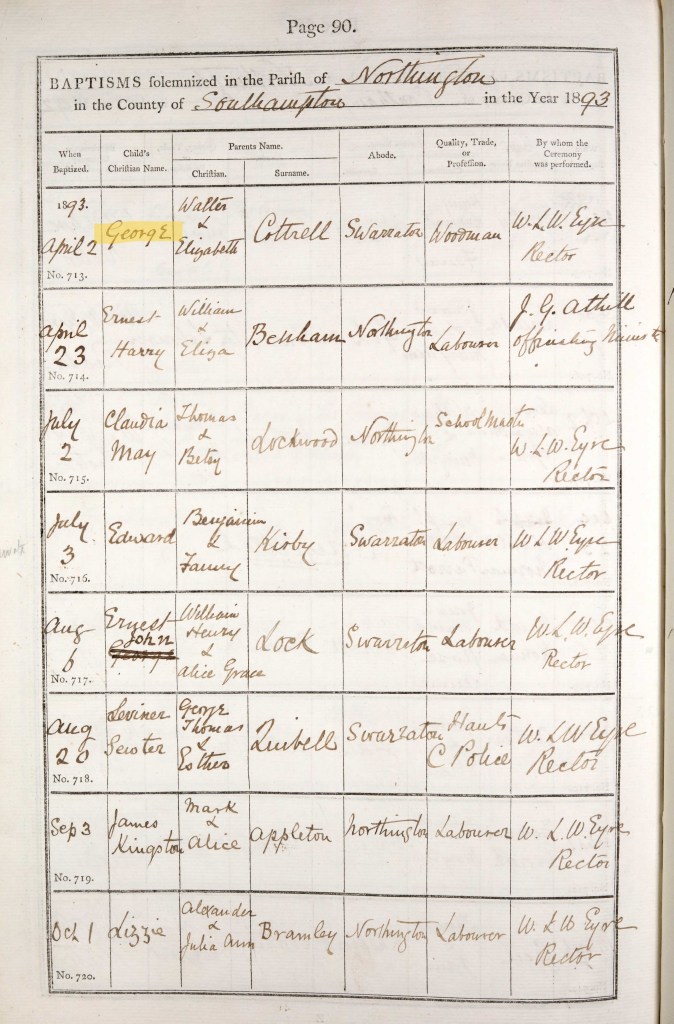 Page 90.
BAPTISMS solemnized in the Parish of Northington
in the County of Southampton in the Year 1893
When Baptized. Child's Christian Name. Parents Name. Abode. Quality, Trade, or Profession. By whom the Ceremony was performed.
Christian. Surname.
1893. April 2 George Walter & Elizabeth Cottrell Swarraton Woodman W. L. W. Eyre Rector
No. 713.
April 23 Ernest Harry William & Eliza Benham Northington Labourer J. G. Athill officiating Minister
No. 714.
July 2 Claudia May Thomas & Betsy Lockwood Northington School Master W. L. W. Eyre Rector
No. 715.
July 3 Edward Benjamin & Fanny Kirby Swarraton Labourer W L W Eyre Rector
No. 716.
Aug 6 Ernest John George William Henry & Alice Grace Lock Swarraton Labourer W. L. W. Eyre Rector
No. 717.
Aug 20 George Thomas & Esther Swarraton Hants C Police W. L W Eyre Rector
No. 718.
Sep 3 James Kingston Mark & Alice Appleton Northington Labourer W. L. W. Eyre Rector
No. 719.
Oct 1 Lizzie Alexander & Julia Ann Bramley Northington Labourer W. L W Eyre Rector
No. 720.